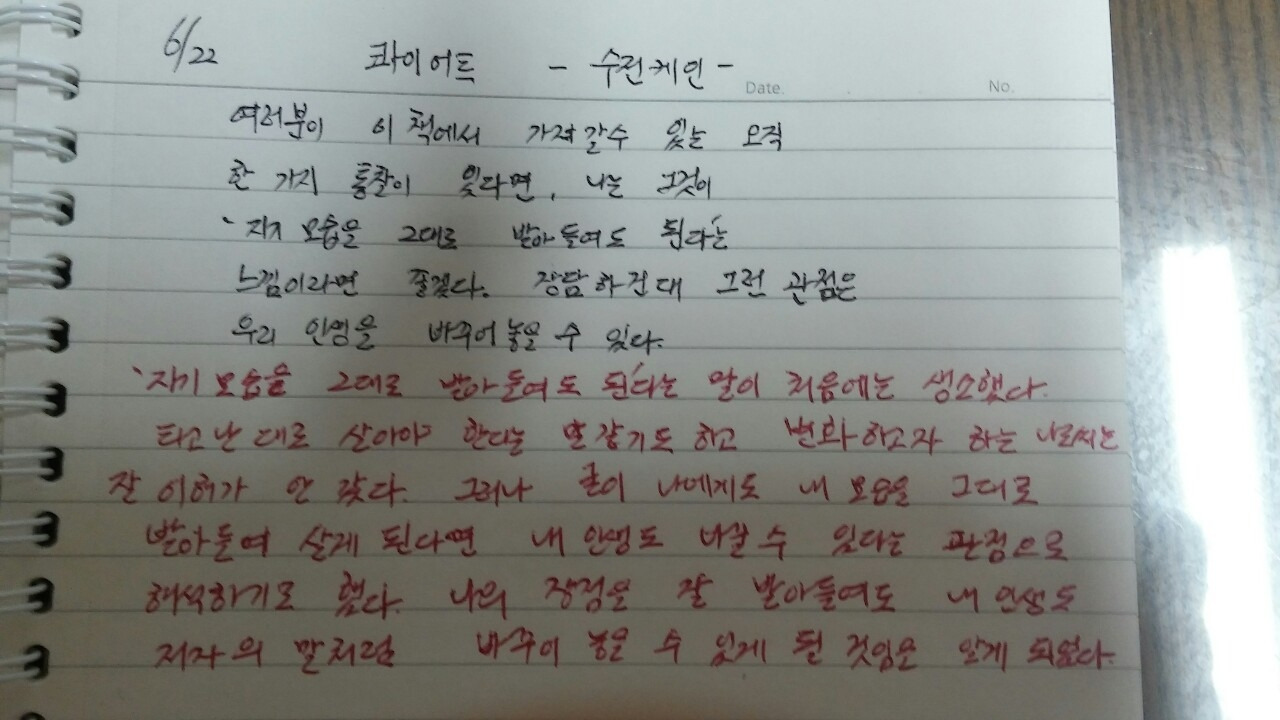 6/22 콰이어트 - 수전케인 -
Date. No.
여러분이 이 책에서 가져갈수 있는 오직
한 가지 통찰이 있다면, 나는 그것이
'자기 모습을 그대로 받아들여도 된다'는
느낌이라면 좋겠다. 장담하건대 그런 관점은
우리 인생을 바꾸어놓을 수 있다.
'자기모습을 그대로 받아들여도 된다'는 말이 처음에는 생소했다.
타고난대로 살아야 한다는 말 같기도 하고 변화하고자 하는 나로써는
잘 이해가 안 갔다. 그러나 굳이 나에게도 내 모습을 그대로
받아들여 살게 된다면 내 인생도 바뀔 수 있다는 관점으로
해석하기로 했다. 나의 장점을 잘 받아들여도 내 인생도
저자의 말처럼 바꾸어 놓을 수 있게 될 것임을 알게 되었다.